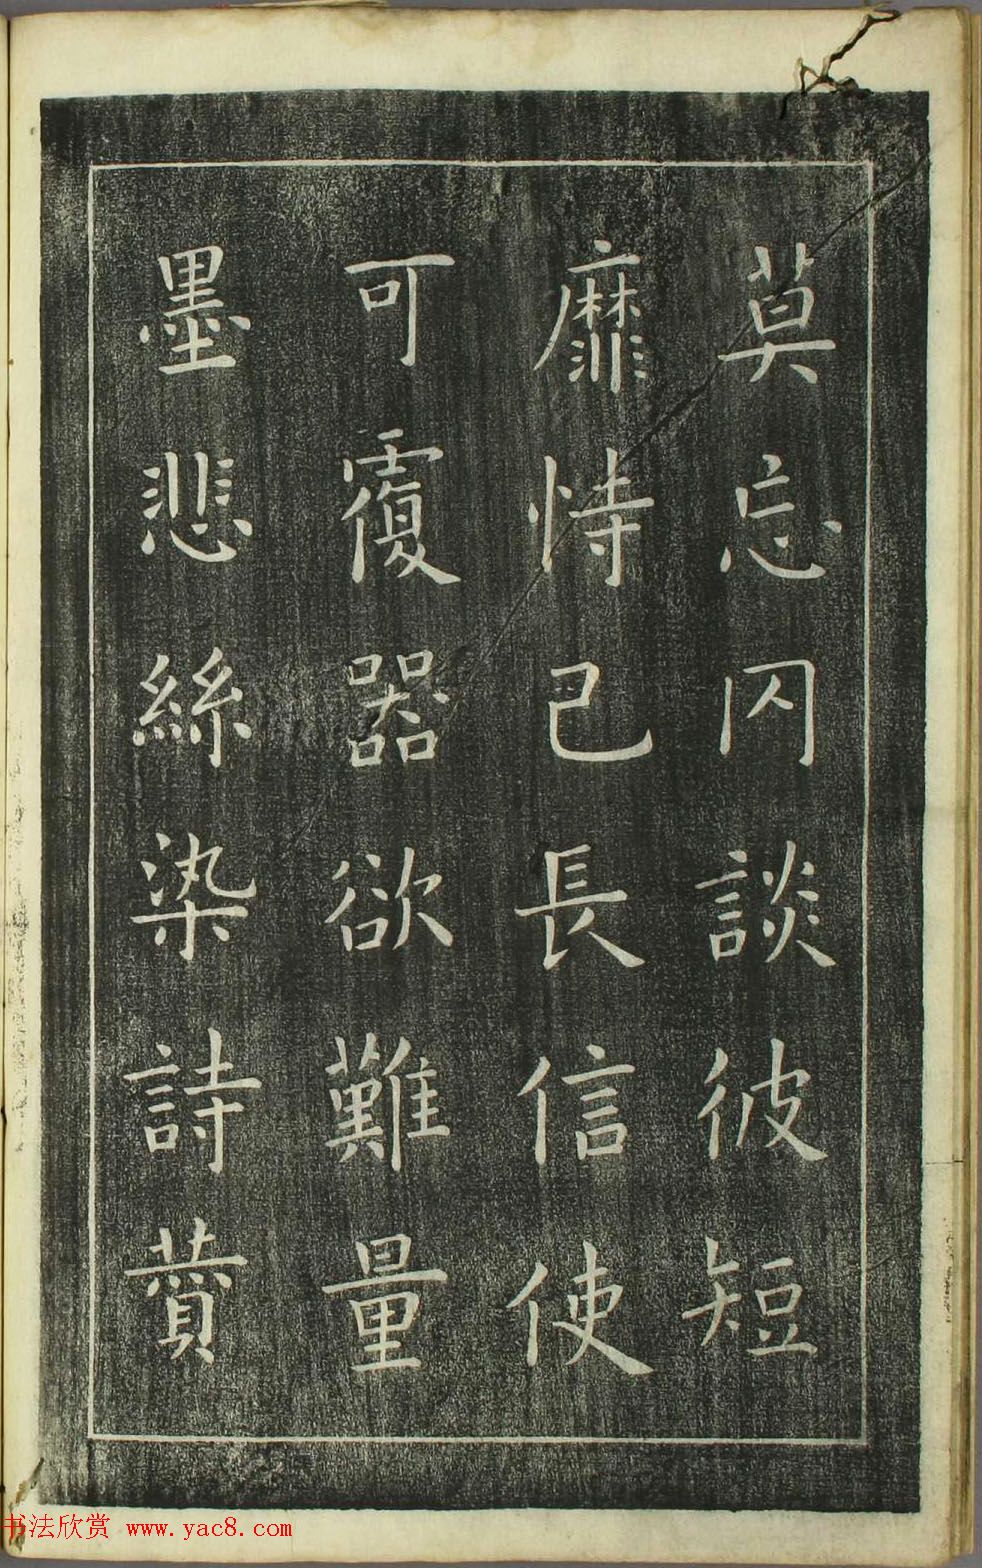 莫忘罔談彼短
靡恃己長信使
可覆器欲難量
墨悲絲染詩讚
书法欣赏 www.yac8.com